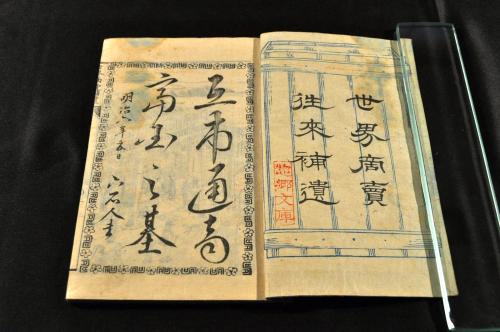 世界商賣
往來補遺
郷文庫
互市通商
富国之基
明治六年五月